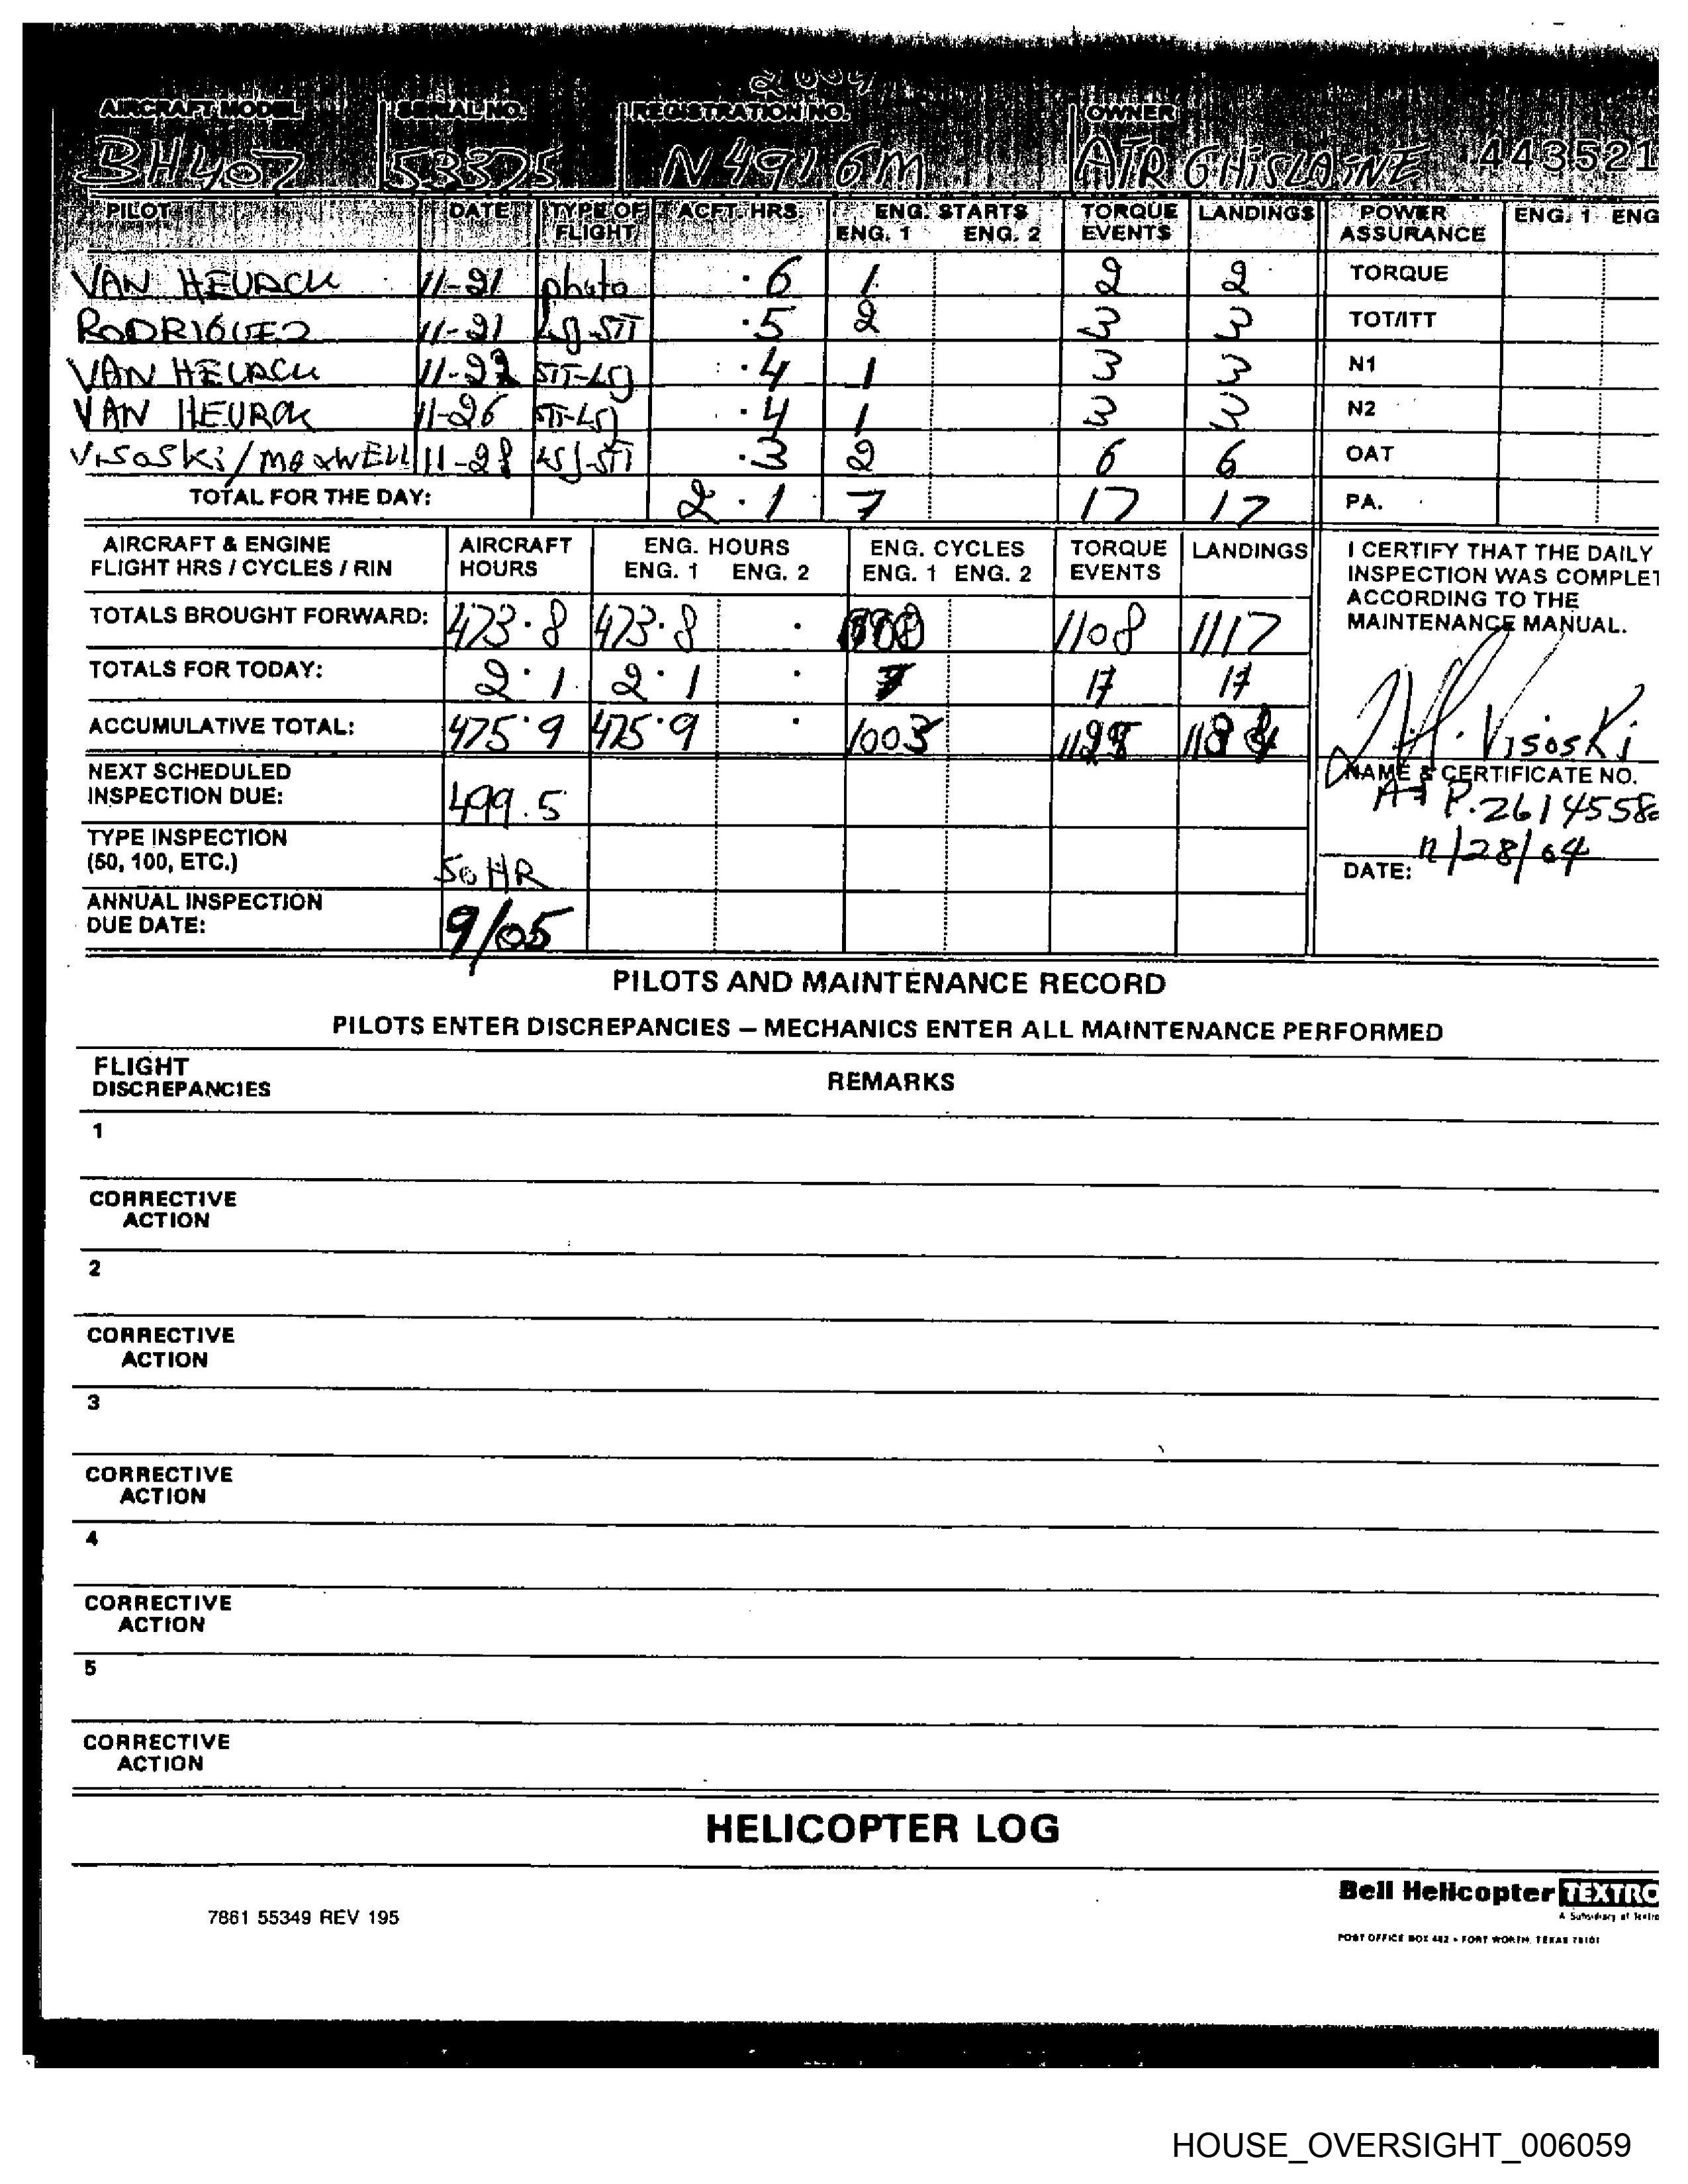 2004
AIRCRAFT MODEL SERIAL NO. REGISTRATION NO. OWNER
BH407 53375 N491GM AIR GHISLAINE 443521
PILOT DATE TYPE OF FLIGHT ACFT. HRS. ENG. STARTS ENG. 1 ENG. 2 TORQUE EVENTS LANDINGS POWER ASSURANCE ENG. 1 ENG
VAN HEURCK 11-21 photo .6 1 2 2 TORQUE
RODRIGUEZ 11-21 LSJ-STT .5 2 3 3 TOT/ITT
VAN HEURCK 11-22 STT-LSJ .4 1 3 3 N1
VAN HEURCK 11-26 STT-LSJ .4 1 3 3 N2
VISOSKI/MAXWELL 11-28 LSJ-STT .3 2 6 6 OAT
TOTAL FOR THE DAY: 2.1 7 17 17 PA.
AIRCRAFT & ENGINE FLIGHT HRS / CYCLES / RIN AIRCRAFT HOURS ENG. HOURS ENG. 1 ENG. 2 ENG. CYCLES ENG. 1 ENG. 2 TORQUE EVENTS LANDINGS
I CERTIFY THAT THE DAILY
INSPECTION WAS COMPLET
ACCORDING TO THE
MAINTENANCE MANUAL.
TOTALS BROUGHT FORWARD: 473.8 473.8 . 1108 1117
TOTALS FOR TODAY: 2.1 2.1 . 7 17 17
ACCUMULATIVE TOTAL: 475.9 475.9 . 1003
Visoski
NAME & CERTIFICATE NO.
ATP.2614558
11/28/04
DATE:
NEXT SCHEDULED
INSPECTION DUE: 499.5
TYPE INSPECTION
(50, 100, ETC.) 50 HR
ANNUAL INSPECTION
DUE DATE: 9/05
PILOTS AND MAINTENANCE RECORD
PILOTS ENTER DISCREPANCIES – MECHANICS ENTER ALL MAINTENANCE PERFORMED
FLIGHT
DISCREPANCIES REMARKS
1
CORRECTIVE
ACTION
2
CORRECTIVE
ACTION
3
CORRECTIVE
ACTION
4
CORRECTIVE
ACTION
5
CORRECTIVE
ACTION
HELICOPTER LOG
Bell Helicopter TEXTRO
A Subsidiary of Textro
7861 55349 REV 195
POST OFFICE BOX 482 • FORT WORTH, TEXAS 76101
HOUSE_OVERSIGHT_006059